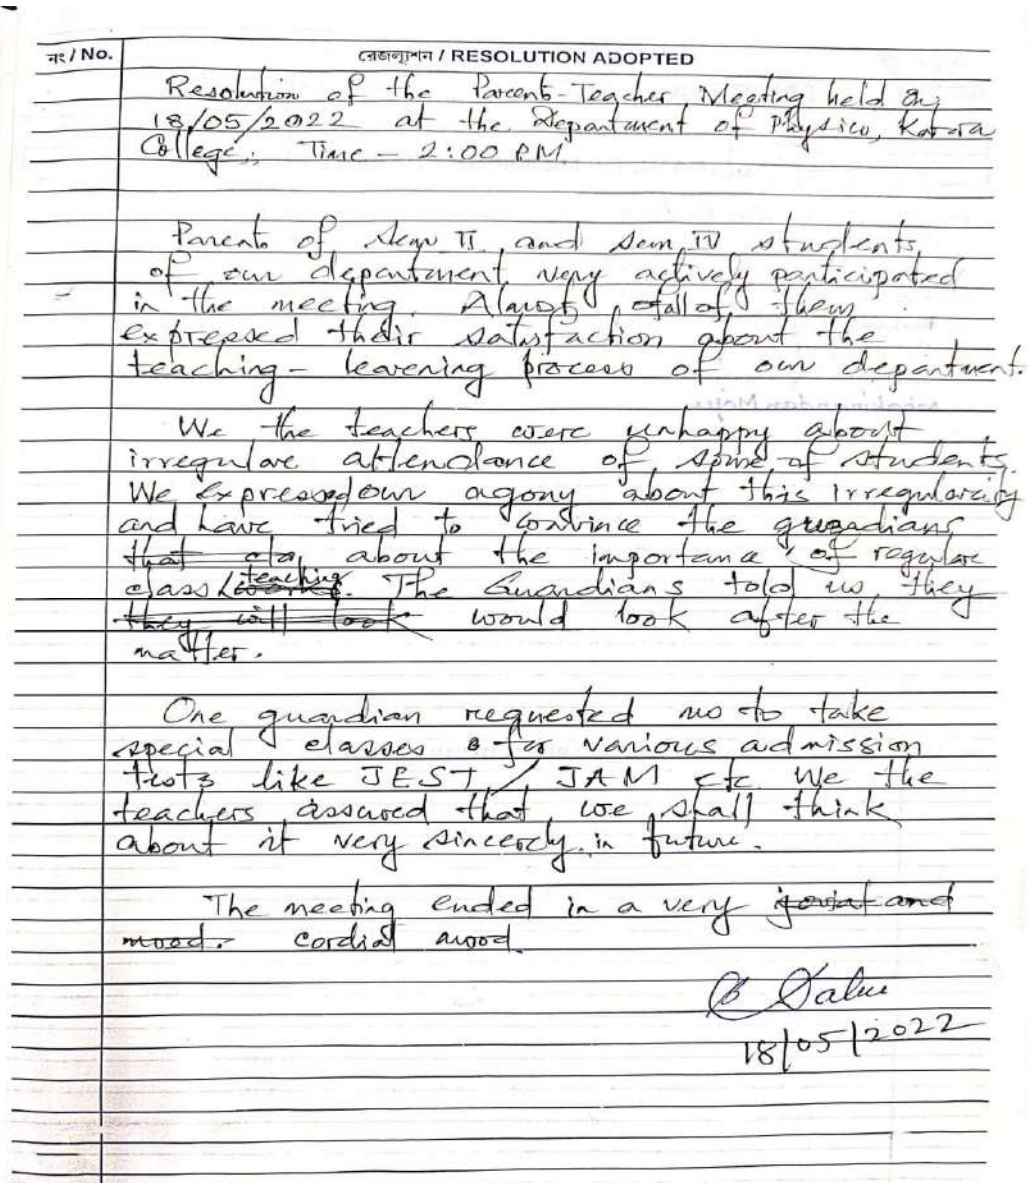 নং / No. রেজল্যুশন / RESOLUTION ADOPTED
Resolution of the Parent-Teacher Meeting held on
18/05/2022 at the Department of Physics, Katwa
College, Time - 2:00 PM
Parents of Sem II and Sem IV students
of our department very actively participated
in the meeting. Almost all of them
expressed their satisfaction about the
teaching- learning process of our department.
We the teachers were unhappy about
irregular attendance of some of students.
We expressed our agony about this irregularity
and have tried to convince the guardians
that cla about the importance of regular
class teaching. The Guardians told us they
they will look would look after the
matter.
One guardian requested us to take
special classes for various admission
tests like JEST / JAM etc We the
teachers assured that we shall think
about it very sincerely in future.
The meeting ended in a very jovial and
mood. cordial mood.
18/05/2022